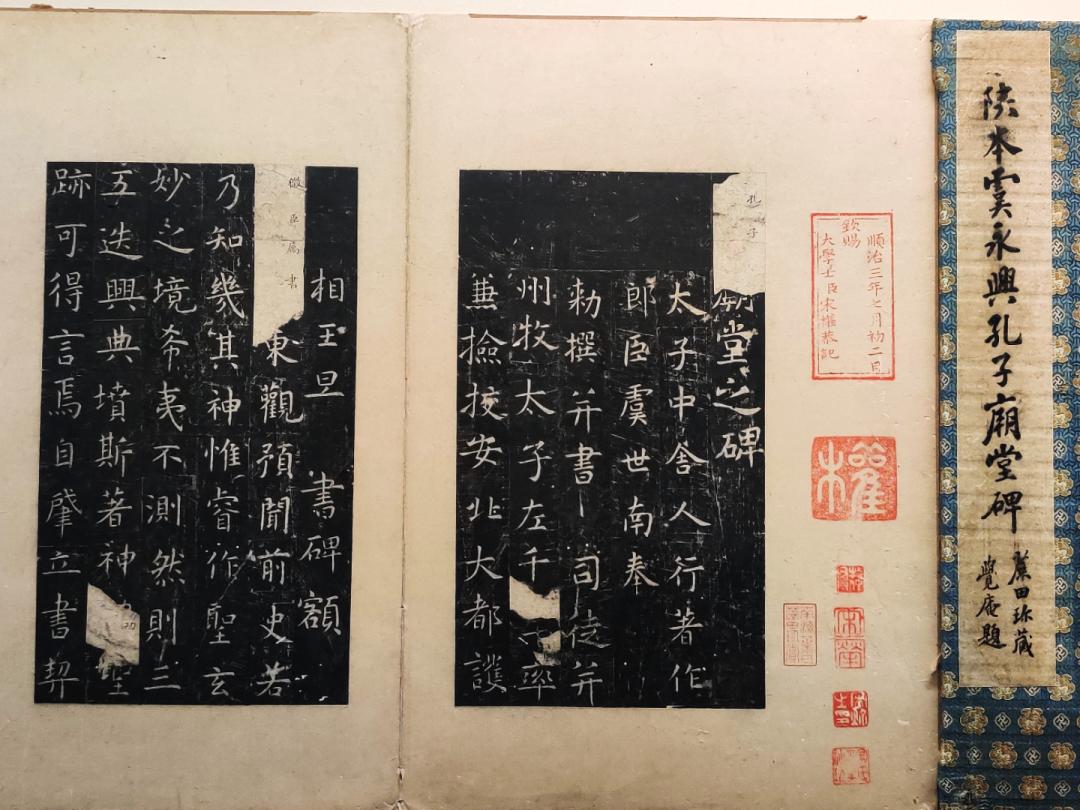 陝本虞永興孔子廟堂碑
田珍藏
覺庵題
順治三年七月初二日
欽賜
大學士臣宋權恭記
權
孔子廟堂之碑
太子中舍人行著作
郎臣虞世南奉
勅撰并書 司徒并
州牧太子左千牛率
兼撿挍安北大都護
相王旦 書碑額
微臣屬書東觀預聞前史若
乃知幾其神惟睿作聖玄
妙之境希夷不測然則三
五迭興典墳斯著神功聖
跡可得言焉自肇立書契